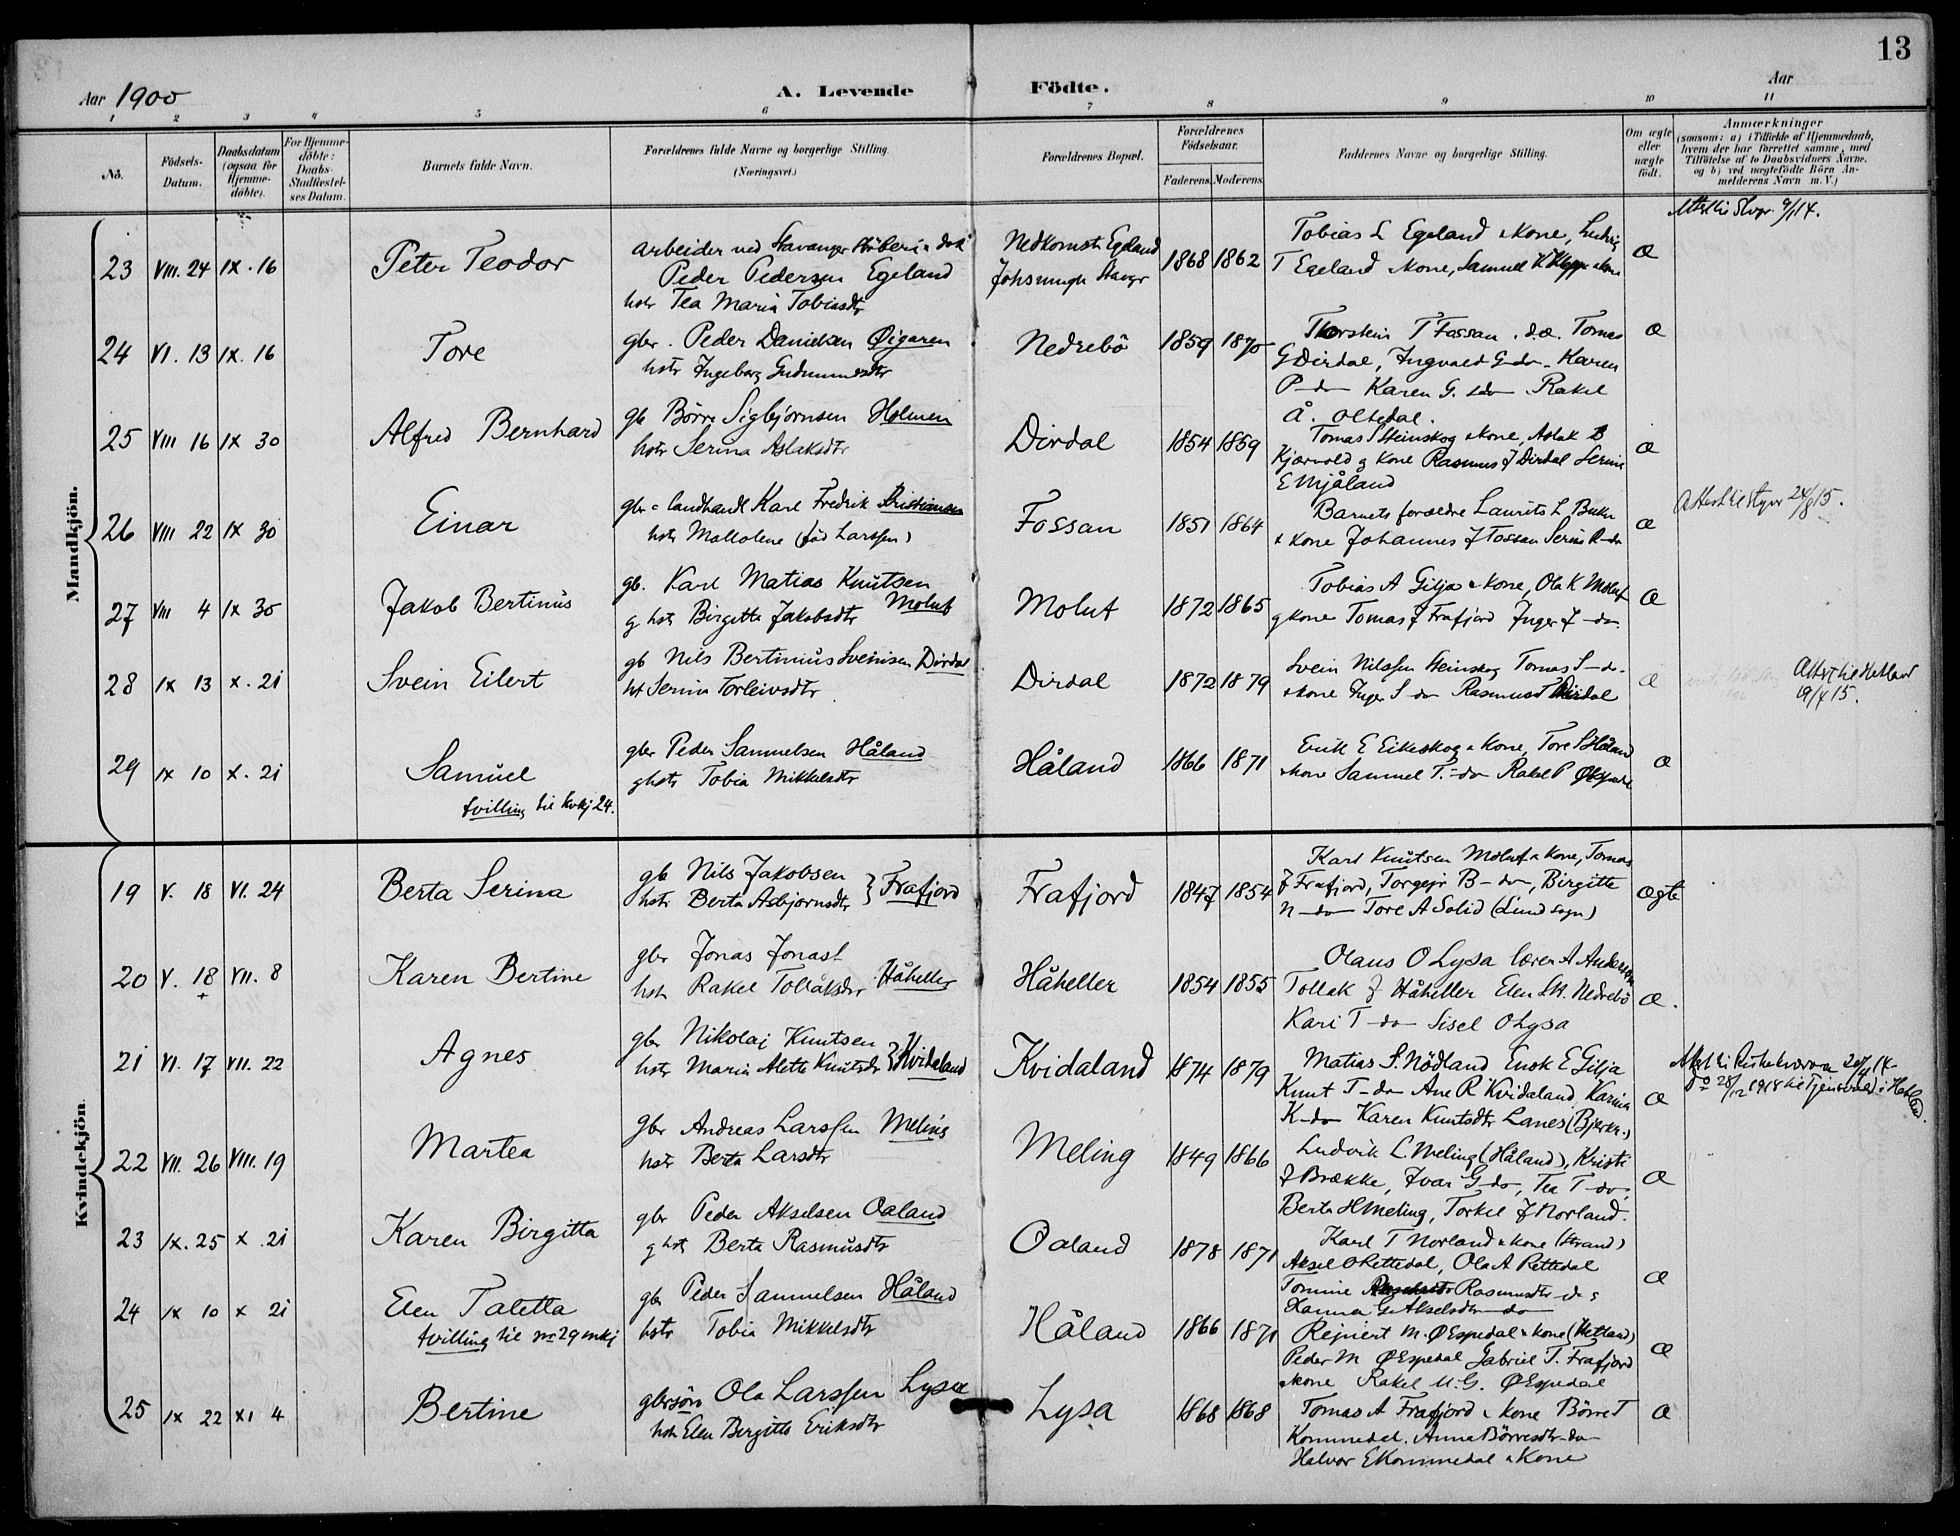 13
Aar 1900
A. Levende Födte.
Aar
1 2 3 4 5 6 7 8 9 10 11
No.
Födsels-Datum.
Daabsdatum (ogsaa for Hjemme-döbte).
For Hjemme-döbte: Daabs-Stadfæstel-ses Datum.
Barnets fulde Navn.
Forældrenes fulde Navne og borgerlige Stilling. (Næringsvei.)
Forældrenes Bopæl.
Forældrenes Födselsaar.
Faderens. Moderens.
Faddernes Navne og borgerlige Stilling.
Om ægte eller uægte födt.
Anmærkninger
(saasom: a) i Tilfælde af Hjemmedaab, hvem der har forrettet samme, med Tilföielse af to Daabsvidners Navne, og b) ved uægtefödte Börn Anmelderens Navn m. V.)
Mandkjön.
23 VIII. 24 IX. 16 Peter Teodor
arbeider ved Stavanger
Peder Pedersen Egeland
hstr Tea Maria Tobiasdtr
Nedkomst: Egeland
1868 1862
Tobias L Egeland & kone, Ludvig
T Egeland & kone, Samuel K & kone
Æ
24 VI. 13 IX. 16 Tore
gbr. Peder Danielsen Øigaren
hstr Ingeborg Gudmundsdtr
Nedrebö
1859 1870
Thorstein T Fossan. d.æ. Tomas
G Dirdal, Ingvald G-do- Karen
P-do Karen G. -do Rakel
Å. Oltedal.
Æ
25 VIII 16 IX 30 Alfred Bernhard
gb Börre Sigbjörnsen Holmen
hstr Serina Aslaksdtr
Dirdal
1854 1859
Tomas S Steinskog & kone, Aslak B
Kjærvold g kone Rasmus J Dirdal Serine
E Mjåland
Æ
26 VIII 22 IX 30 Einar
gbr & landhandl Karl Fredrik Kristiansen
hstr Mallolene (föd Larssen)
Fossan
1851 1864
Barnets forældre Laurits L
& kone Johannes J Fossan Serine R-do
Æ
24/8 15.
27 VIII 4 IX 30 Jakob Bertinus
gb. Karl Matias Knutsen
g hstr Birgitte Jakobsdtr Molut
Molut
1872 1865
Tobias A Gilja & kone, Ola K Molut
g kone Tomas J Frafjord Inger J -do-
Æ
28 IX 13 X. 21 Svein Eilert
gb Nils Bertinius Sveinsen Dirdal
hst Serine Torleivsdtr
Dirdal
1872 1879
Svein Nilssen Steinskog Tomas S-do-
& kone Inger S do Rasmus T Dirdal
Æ
Attest til Hetland
19/4 15.
29 IX 10 X. 21 Samuel
tvilling til kvkj 24.
gbr Peder Samuelsen Håland
ghstr Tobia Mikkelsdtr
Håland
1866 1871
Erik E Eikeskog & kone, Tore S Håland
& kone Samuel T.-do Rakel P
Æ
Kvindekjön.
19 V. 18 VI. 24 Berta Serina
gb Nils Jakobsen
hstr Berta Asbjørnsdtr } Frafjord
Frafjord
1847 1854
Karl Knutsen Molut & kone, Tomas
J Frafjord, Torgejr B-do, Birgitte
N-do- Tore A Solid (Lund sogn)
Ægte
20 V. 18 VII. 8 Karen Bertine
gbr Jonas Jonass
hstr Rakel Tollaksdtr Håheller
Håheller
1854 1855
Olaus O Lysa lærer A Andersen
Tollak J Håheller Elen Nedrebö
Kari T-do- Sisel O Lysa
Æ.
21 VI. 17 VII. 22 Agnes
gbr Nikolaj Knutsen
hstr Maria Alette Knutsdtr } Kvidaland
Kvidaland
1874 1879
Matias S. Nödland Enok E Gilja
Knut T-do Ane R Kvidaland, Karina
K-do Karen Knutsdtr Lanes (Bjerkr.)
Æ
22 VII. 26 VIII. 19 Martea
gbr Andreas Larssen Meling
hstr Berta Larsdtr
Meling
1849 1866
Ludvik L. Meling (Håland), Kristi
J Brække, Ivar G-do, Tea T-do,
Berta H Meling, Torkel J Norland.
Æ
23 IX. 25 X. 21 Karen Birgitta
gbr Peder Akselsen Oaland
g hstr Berta Rasmusdtr
Oaland
1878 1871
Karl T Norland & kone (Strand)
Aksel O Rettedal, Ola A Rettedal
Tomine Rasmusdtr
Hanna G Akselsdtr-do
Æ
24 IX 10 X 21 Elen Taletta
tvilling til nr 29 mkj
gbr Peder Samuelsen Håland
hstr Tobia Mikkelsdtr
Håland
1866 1871
Rejniert M. Ø Espedal & kone (Hetland)
Peder M Ø Espedal Gabriel T. Frafjord
& kone Rakel M.G. Ø Espedal
Æ
25 IX 22 XI 4 Bertine
gbrsön Ola Larssen Lysa
hstr Elen Birgitte Eriksdtr
Lysa
1868 1868
Tomas A Frafjord & kone Börre T
Kommedal. Anna Börresdtr-do-
Halvor E Kommedal & Kone
Æ